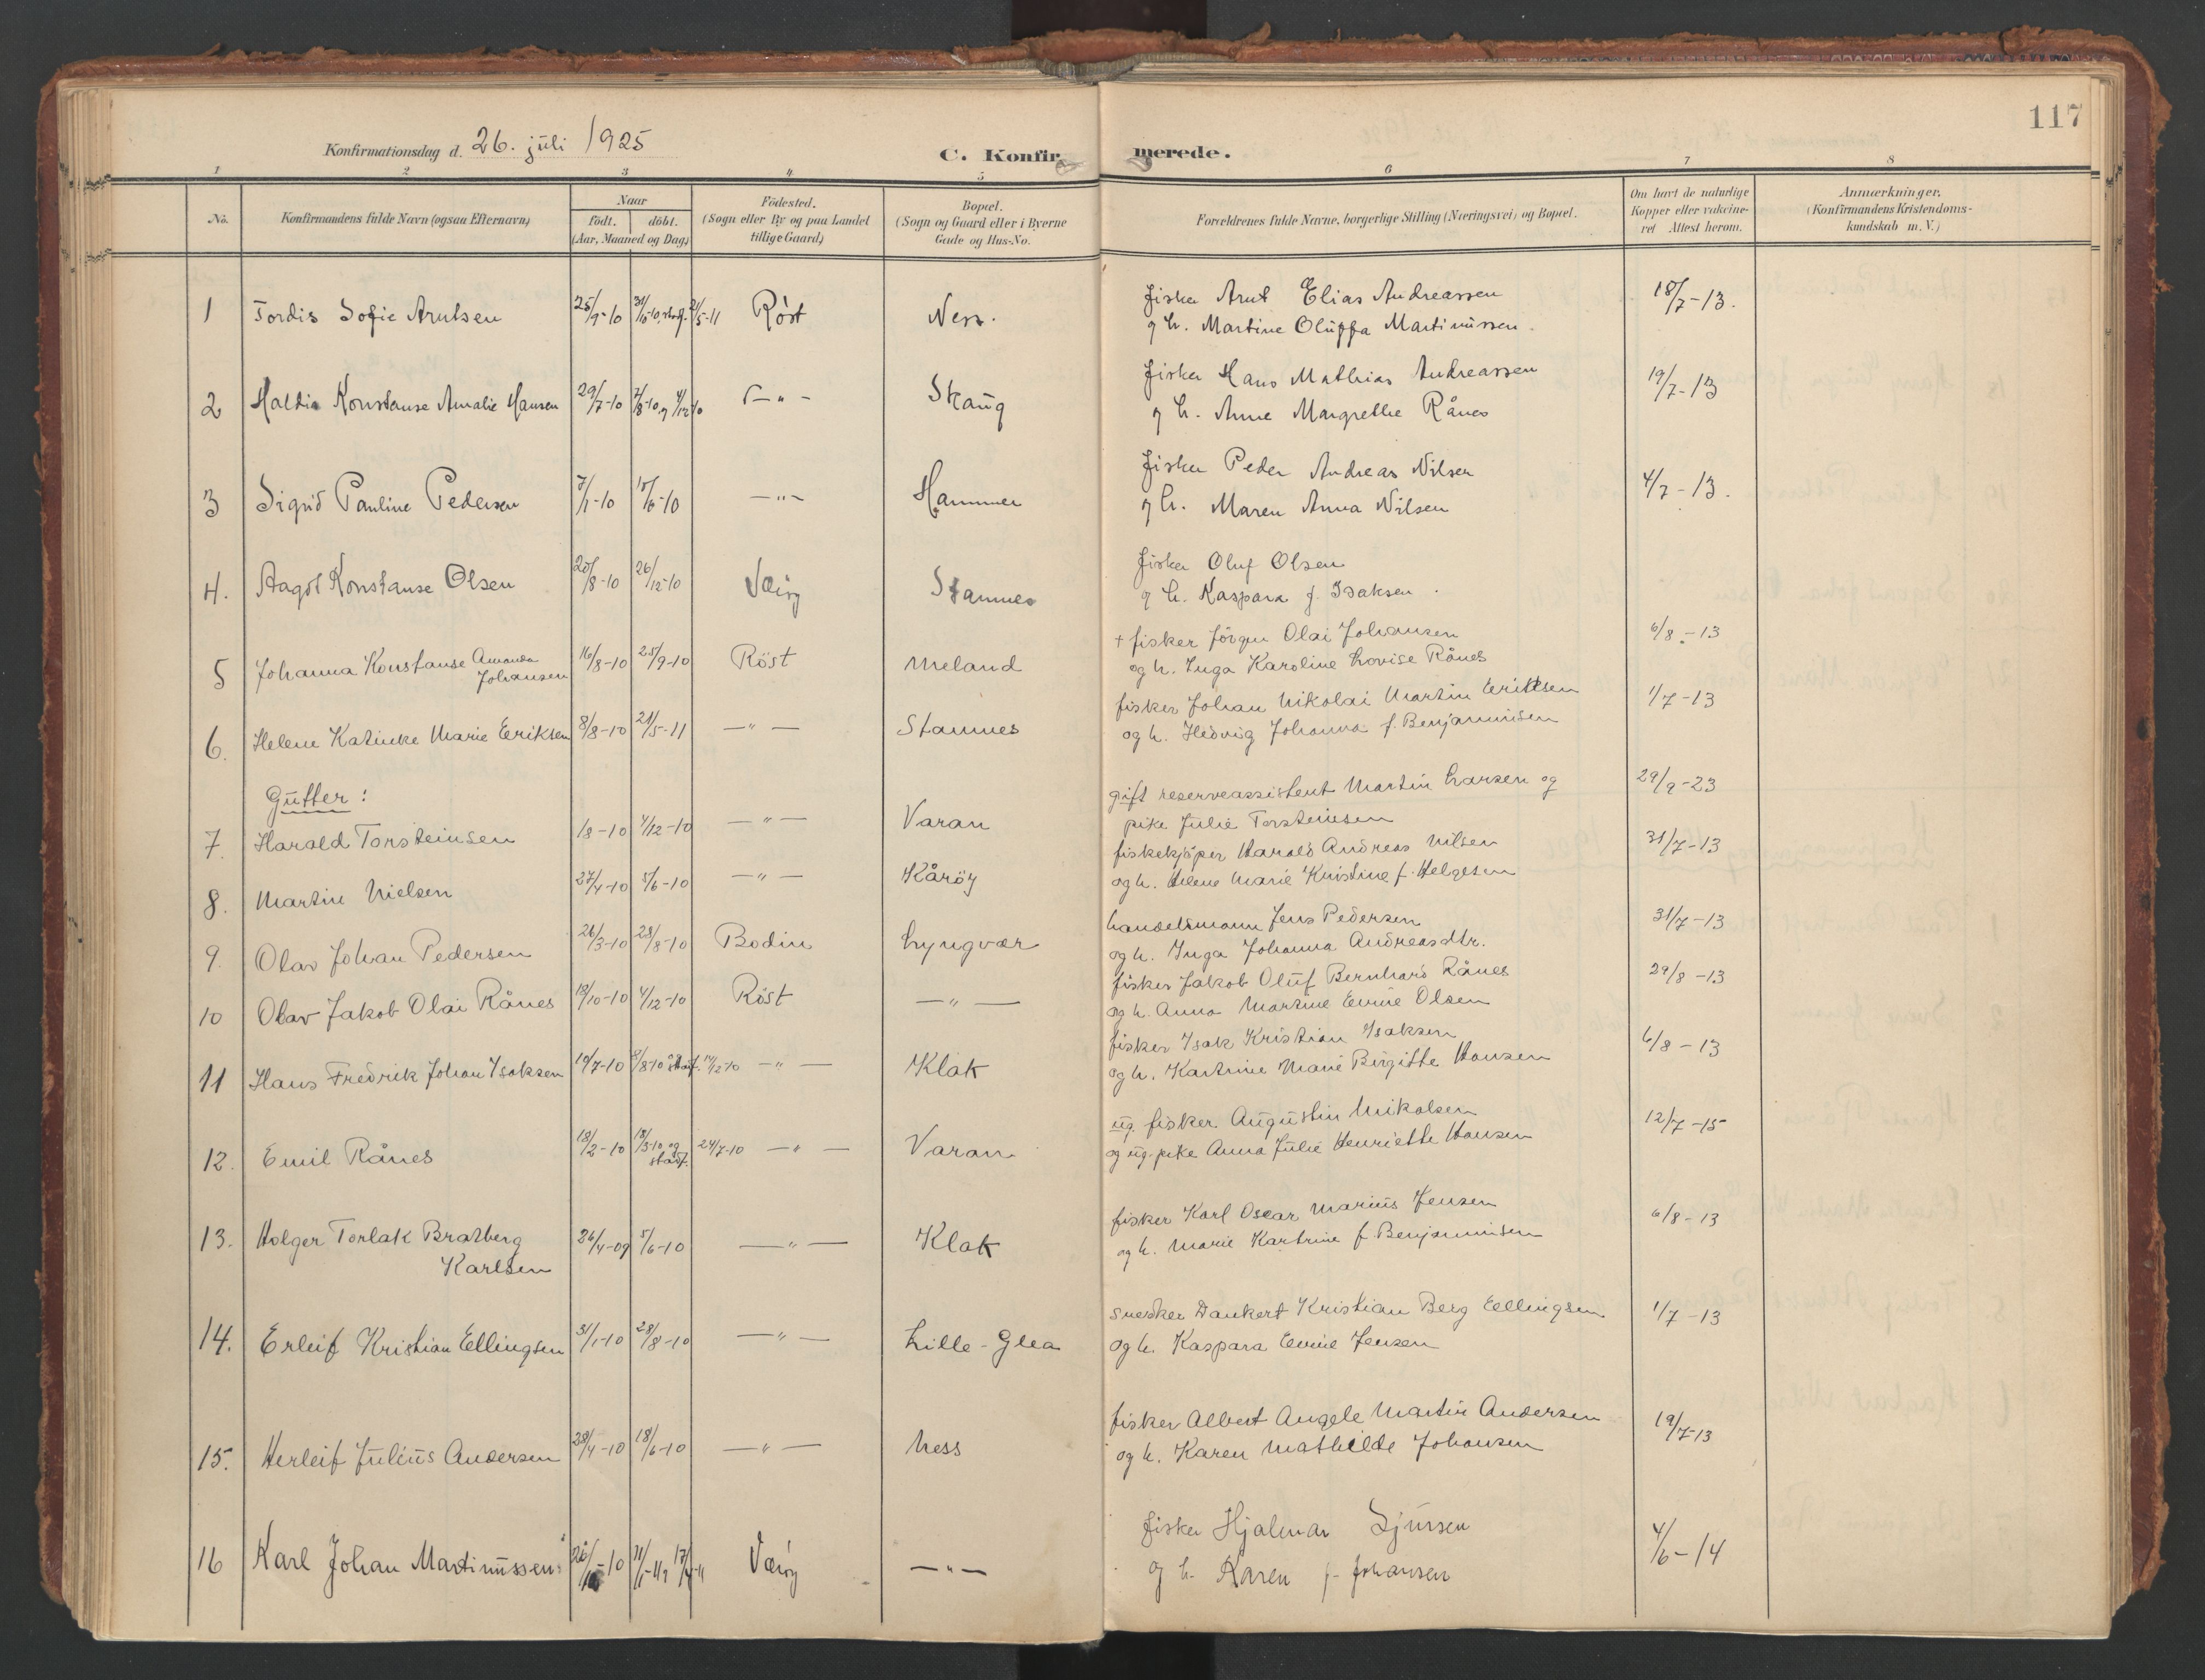 117
Konfirmationsdag d. 26. juli 1925
C. Konfirmerede.
1 2 3 4 5 6 7 8
No.
Konfirmandens fulde Navn (ogsaa Efternavn)
Naar
født. døbt.
(Aar, Maaned og Dag)
Fødested.
(Sogn eller By og paa Landet
tillige Gaard)
Bopæl.
(Sogn og Gaard eller i Byerne
Gade og Hus-No.
Forældrenes fulde Navne, borgerlige Stilling (Næringsvei) og Bopæl.
Om havt de naturlige
Kopper eller vakcine-
ret Attest herom.
Anmærkninger.
(Konfirmandens Kristendoms-
kundskab m. V.)
1 Tordis Sofie Arntsen 25/9-10 Røst Ness. fisker Arnt Elias Andreassen 18/7-13.
og h. Martine Oluffa Martinussen.
2 Haldis Konstanse Amalie Hansen 29/7-10 7/8-10 og 4/12-10 -"- Skaug fisker Hans Mathias Andreassen 19/7-13
og h. Anne Margrethe Rånes
3 Sigrid Pauline Pedersen 7/1-10 15/6-10 -"- Hammer fisker Peder Andreas Nilsen 4/7-13.
og h. Maren Anna Nilsen
4. Aagot Konstanse Olsen 20/8-10 26/12-10 Værøy Stamnes fisker Oluf Olsen
og h. Kaspara f. Isaksen.
5 Johanna Konstanse Amanda Johansen 16/8-10 25/9-10 Röst Meland + fisker Jörgen Olai Johansen 6/8-13
og h. Inga Karoline Lovise Rånes
6. Helene Katinka Marie Eriksen 8/8-10 21/5-11 -"- Stamnes fisker Johan Nikolai Martin Eriksen 1/7-13
og h. Hedvig Johanna f. Benjaminsen
Gutter:
7. Harald Torsteinsen 1/8-10 4/12-10 -"- Varan gift reserveassistent Martin Larsen og 29/9-23
pike Julie Torsteinsen
8. Martin Nielsen 27/4-10 5/6-10 -"- Kåröy fiskekjöper Harald Andreas Nilsen 31/7-13
og h. Helene Marie Kristine f. Helgesen
9. Olav Johan Pedersen 26/3-10 28/8-10 Bodin Lyngvær handelsmann Jens Pedersen 31/7-13
og h. Inga Johanna Andreasdtr.
10 Olav Jakob Olai Rånes 18/10-10 4/12-10 Röst -"- fisker Jakob Oluf Bernhard Rånes 29/8-13
og h. Anna Martine Emine Olsen
11 Hans Fredrik Johan Isaksen 19/7-10 -"- Klak fisker Isak Kristian Isaksen 6/8-13
og h. Katrine Marie Birgitte Hansen
12. Emil Rånes 18/2-10 18/3-10 og stadf. 24/7-10 -"- Varan ug. fisker Augustin Nikolsen 12/7-15
og ug. pike Anna Julie Henriette Hansen
13. Holger Torlak Bratberg Karlsen 26/4-09 5/6-10 -"- Klak fisker Karl Oscar Marius Jensen 6/8-13
og h. Marie Kartrine f. Benjaminsen
14. Erleif Kristian Ellingsen 31/1-10 28/8-10 -"- Lille-Glea snekker Dankert Kristian Berg Ellingsen 1/7-13
og h. Kaspara Emine Jensen
15. Herleif Julius Andersen 28/4-10 18/6-10 -"- Ness fisker Albert Angele Martin Andersen 19/7-13
og h. Karen Mathilde Johansen
16 Karl Johan Martinussen Værøy -"- fisker Hjalmar Sjursen 4/6-14
og h. Karen f. Johansen